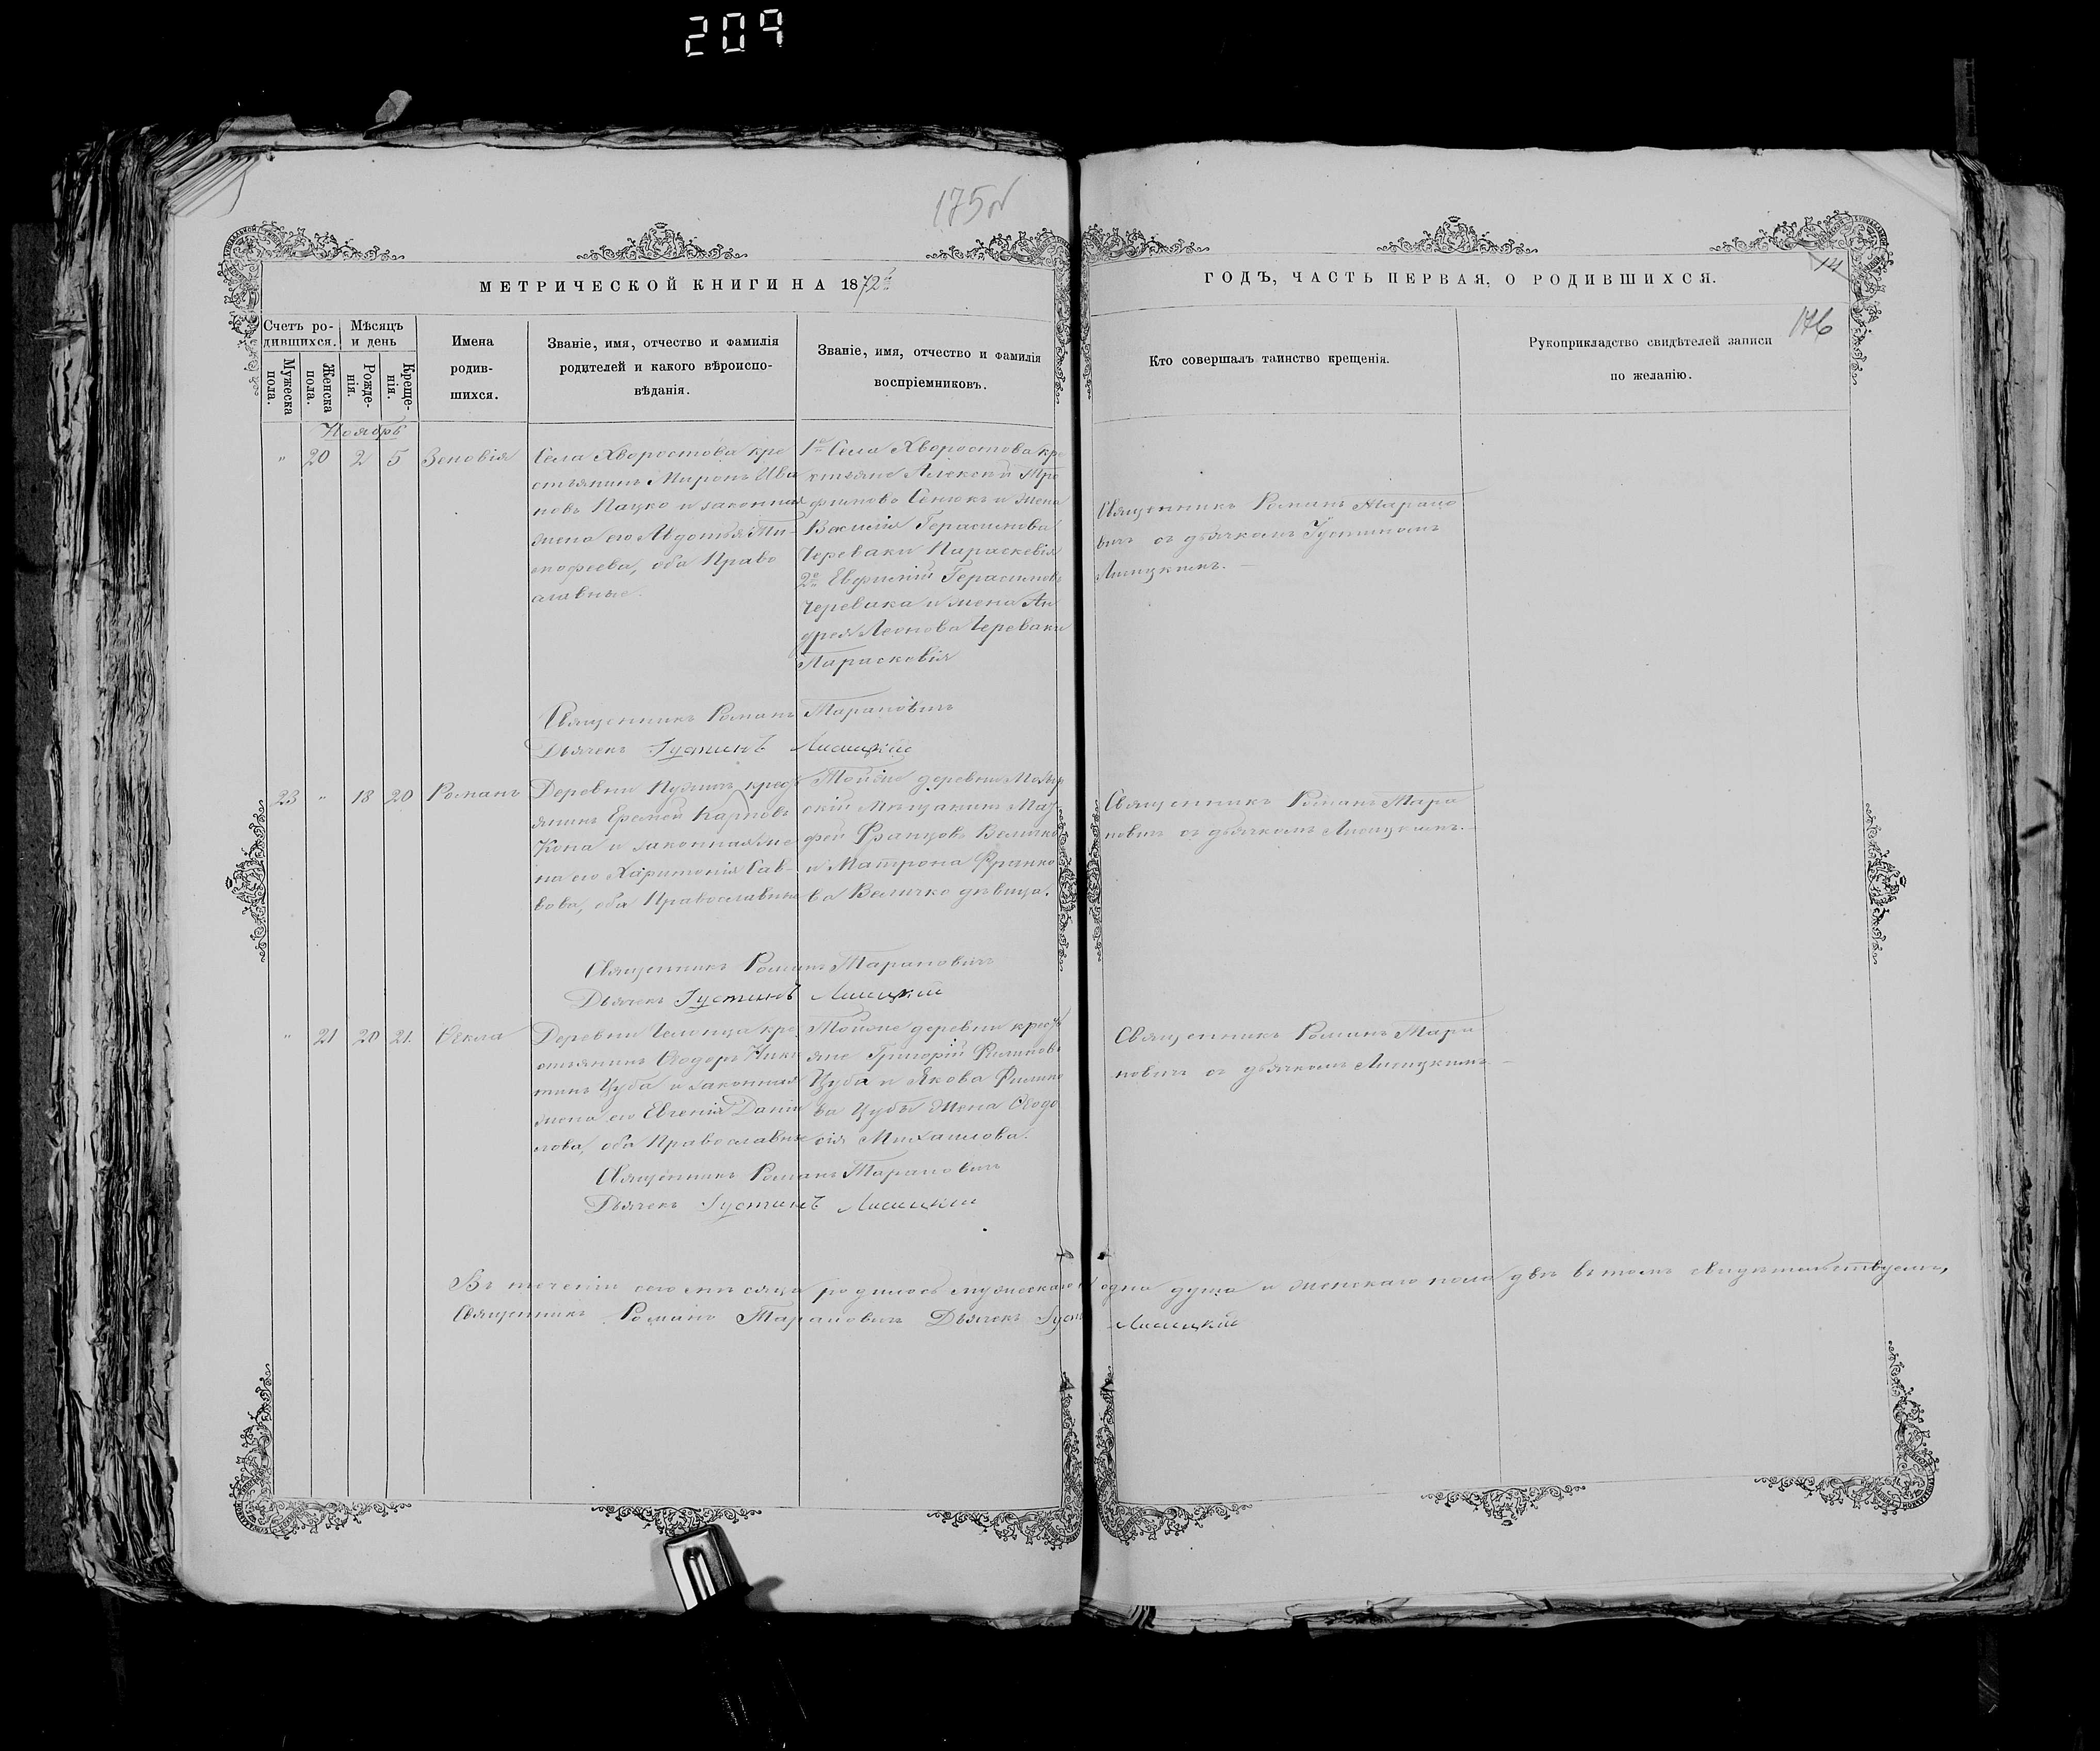 209
175об
МЕТРИЧЕСКОЙ КНИГИ НА 1872й
ГОДЪ, ЧАСТЬ ПЕРВАЯ, О РОДИВШИХСЯ.
14
176
Счетъ ро-
дившихся.
Мужеска
пола.
Женска
пола.
Мѣсяцъ
и день
Рожде-
нія.
Креще-
нія.
Имена
родив-
шихся.
Званіе, имя, отчество и фамилія
родителей и какого вѣроиспо-
вѣданія.
Званіе, имя, отчество и фамилія
воспріемниковъ.
Кто совершалъ таинство крещенія.
Рукоприкладство свидѣтелей записи
по желанію.
Ноябрь
" 20 2 5 Зеновія
Села Хворостова кре
стьянинъ Миронъ Ива
новъ Пауко и законная
жена его Авдотья Ти-
мофеева, оба Право
славные.
1е Села Хворостова кре
стьяне Алексѣй Тро
фимовъ Сенюкъ и жена
Василія Герасимова
Череваки Параскевія
2е Евфимій Герасимовъ
Черевака и жена Ан
дрея Леонова Череваки
Парасковія
Священникъ Романъ Тарано
вичъ съ дьячкомъ Іустиномъ
Лисицкимъ.
Священникъ Романъ Тарановичъ
Дьячекъ Іустинъ Лисицкій
23 " 18 20 Романъ
Деревни Пузичъ крест
янинъ Еремей Карповъ
Копа и законная же
на его Харитонія Сав-
вова, оба Православные
Тойже деревни Мозыр
скій Мѣщанинъ Мат
фей Францовъ Величко
и Матрона Франко
ва Величко дѣвица.
Священникъ Романъ Тара
новичъ съ дьячкомъ Лисицкимъ.
Священникъ Романъ Тарановичъ
Дьячекъ Іустинъ Лисицкій
" 21 20 21. Ѳекла
Деревни Челонца кре
стьянинъ Ѳеодоръ Ники
тинъ Цуба и законная
жена его Евгенія Дани
лова, оба Православные
Тойже деревни крест
яне Григорій Филиповъ
Цуба и Якова Филипо
ва Цубы жена Ѳеодо
сія Михаилова.
Священникъ Романъ Тара
новичъ съ дьячкомъ Лисицкимъ
Священникъ Романъ Тарановичъ
Дьячекъ Іустинъ Лисицкій
Въ теченіи сего мѣсяца родилось мужескаго одна душа и женскаго пола двѣ въ томъ свидѣтельствуемъ,
Священникъ Романъ Тарановичъ Дьячекъ Іуст Лисицкій